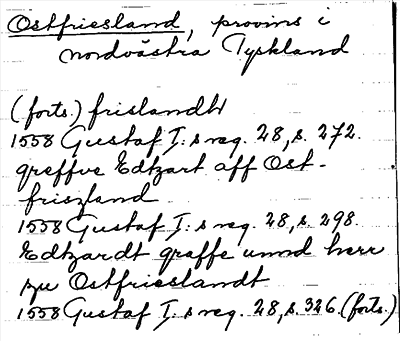 Ostfriesland, provins i
nordvästra Tyskland
(forts.) frislandt
1558 Gustaf I:s reg. 28, s. 272.
greffve Edtzart aff Ost-
friszland
1558 Gustaf I:s reg. 28, s. 298.
Edtzardt graffe unnd herr
zu Ostfrieslandt
1558 Gustaf I:s reg. 28, s. 326. (forts.)